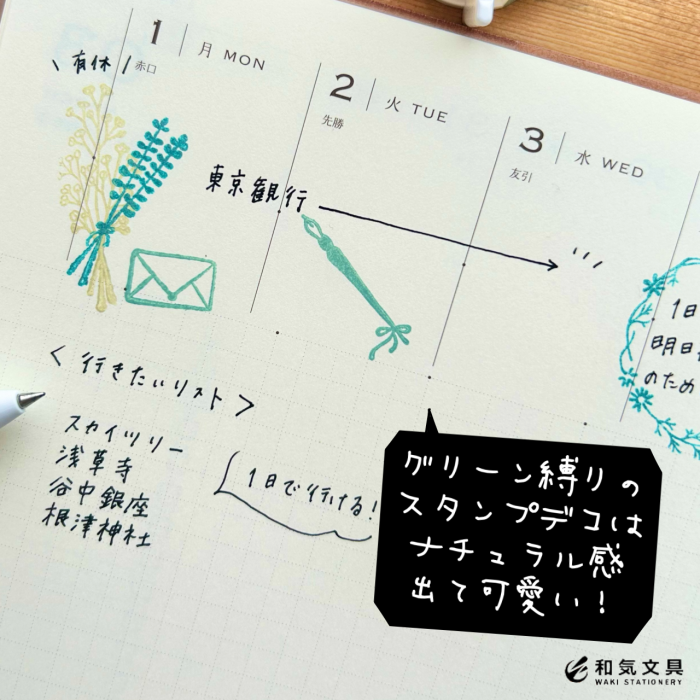 1 月 MON
赤口
\ 有休 /
2 火 TUE
先勝
3 水 WED
友引
東京観行
1日
明日
のため
<行きたいリスト>
スカイツリー
浅草寺
谷中銀座
根津神社
1日で行ける!
グリーン縛りの
スタンプデコは
ナチュラル感
出て可愛い!
和気文具
WAKI STATIONERY